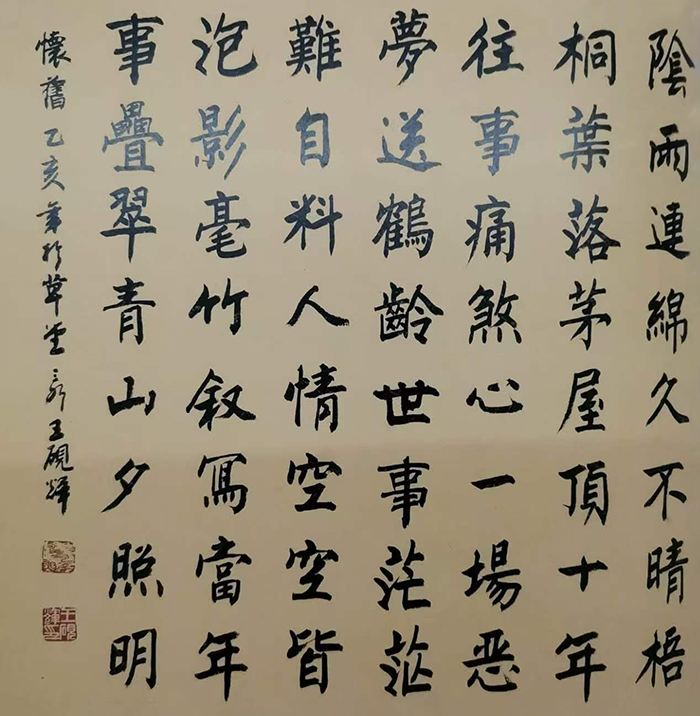 陰雨連綿久不晴梧
桐葉落茅屋頂十年
往事痛煞心一場惡
夢送鶴齡世事茫茫
難自料人情空空皆
泡影毫竹叙寫當年
事疊翠青山夕照明
懷舊乙亥年於草堂 王硯輝